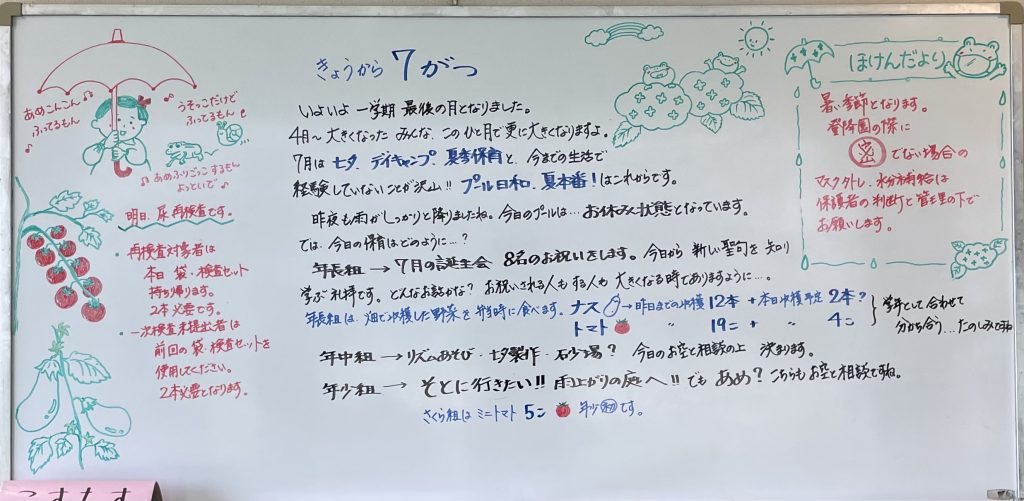 きょうから 7がつ
いよいよ 一学期 最後の月となりました。
4月〜 大きくなった みんな、この ひと月で 更に大きくなりますよ。
7月は 七夕、デイキャンプ、夏季保育と、今までの生活で
経験していないことが沢山!! プール日和、夏本番!はこれからです。
昨夜も雨がしっかりと降りましたね。今日のプールは… お休み状態となっています。
では、今日の保育はどのように…?
年長組 → 7月の誕生会 8名のお祝いをします。今日から 新しい聖句を 知り
学ぶ礼拝です。どんなお話かな? お祝いされる人も する人も 大きくなる時でありますように…。
年長組は、畑で収穫した野菜を お弁当時に食べます。ナス → 昨日までの収穫 12本 + 本日収穫予定 2本?
トマト 〃 19こ + 〃 4こ
学年として合わせて
分かち合う…たのしみですね
年中組 → リズムあそび・七夕製作・石砂場? 今日のお空と相談の上 決まります。
年少組 → そとに行きたい!! 雨上がりの庭へ!! でも あめ? こちらもお空と相談ですね。
さくら組は ミニトマト 5こ 年少 です。
あめこんこん
ふってるもん
うそっこだけど
ふってるもん
あめふりごっこ するもん
よっといで
明日、尿 再検査です。
・再検査対象者は
本日 袋・検査セット
持ち帰ります。
2本必要です。
・一次検査未提出者は
前回の袋・検査セットを
使用してください。
2本必要となります。
ほけんだより
暑い季節となります。
登降園の際に
密 でない場合の
マスク外し、水分補給は
保護者の判断と管理の下で
お願いします。